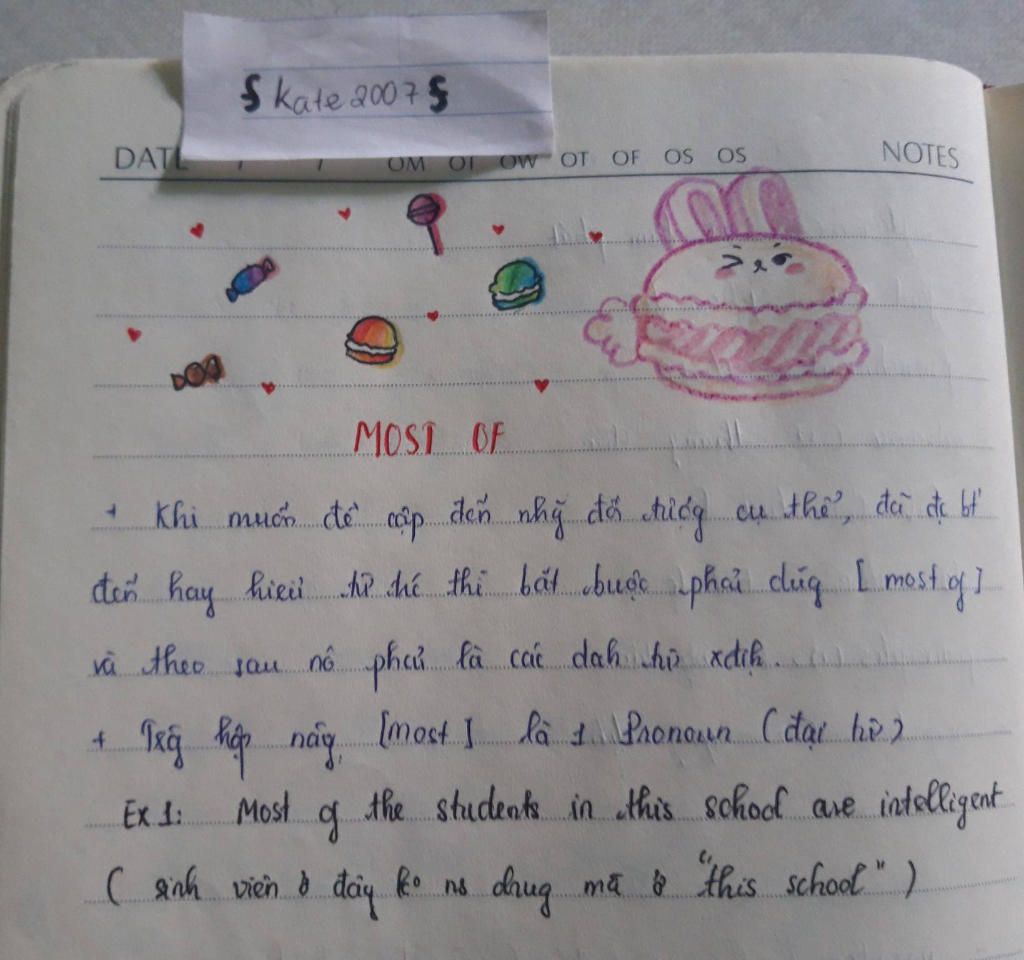 § kate2007 §
DATE / / OM OT OW OT OF OS OS NOTES
MOST OF
+ Khi muốn đề cập đến nhỹ đối tượg cụ thể, đã đc bt
đến hay hiểu từ trc thì bắt buộc phải dùg [most of]
và theo sau nó phải là các dah từ xđịh.
+ Trg hợp này, [most] là 1 Pronoun (đại từ)
Ex 1: Most of the students in this school are intelligent
( sinh viên ở đây ko ns chug mà ở "this school" )